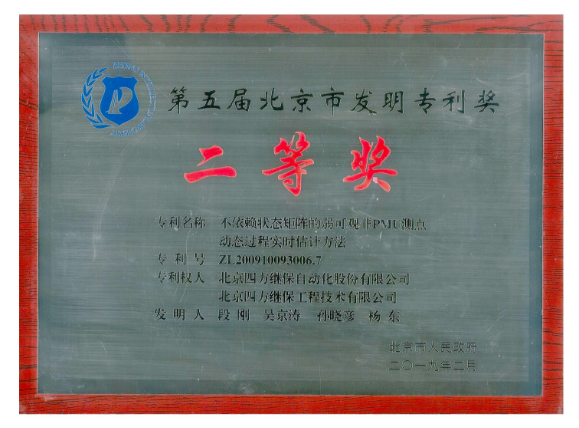 第五届北京市发明专利奖
二等奖
专利名称 不依赖状态矩阵的弱可观非PMU测点
动态过程实时估计方法
专利号 ZL200910093006.7
专利权人 北京四方继保自动化股份有限公司
北京四方继保工程技术有限公司
发明人 段刚 吴京涛 孙晓彦 杨东
北京市人民政府
二〇一九年二月